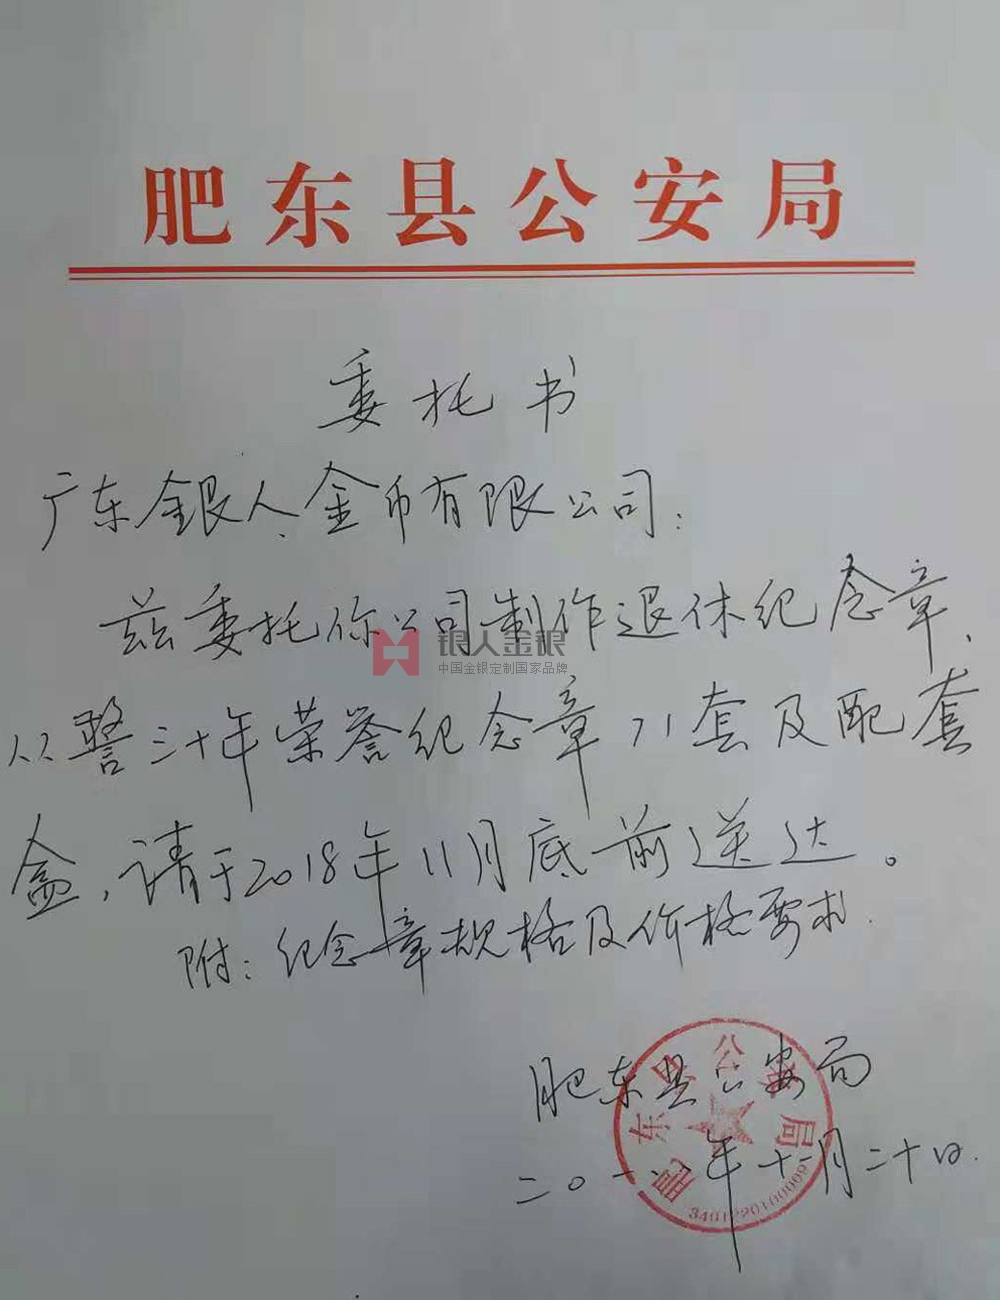 肥东县公安局
委托书
广东银人金币有限公司：
兹委托你公司制作退休纪念章、
从警三十年荣誉纪念章71套及配套
盒，请于2018年11月底前送达。
附：纪念章规格及价格要求.
肥东县公安局
二〇一八年十一月二十日.
银人金银
中国金银定制国家品牌
肥东县公安局